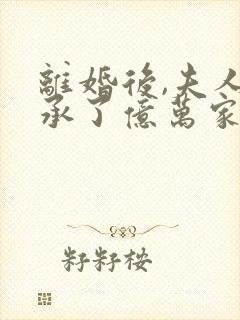 離婚後,夫人
承了億萬家
籽籽桉